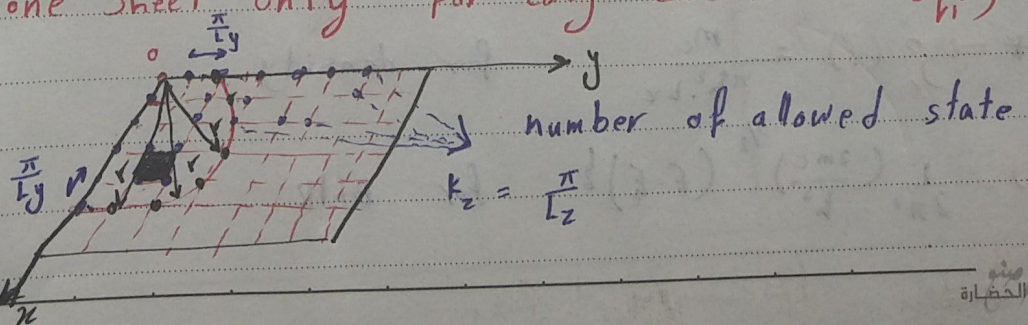 one sheet only for
π
Ly
o
y
number of allowed state
π
Ly
r
r
r
kz = π
Lz
x
مينو
الحضارة